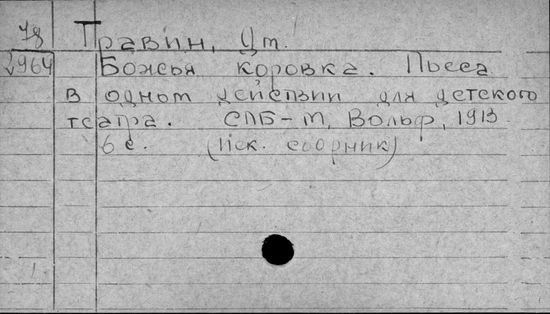 78 Правин, Дт.
2964 Божья коровка. Пьеса
в одном действии для детского
театра. СПБ-М, Вольф, 1913
6 с. (Иск. сборник)